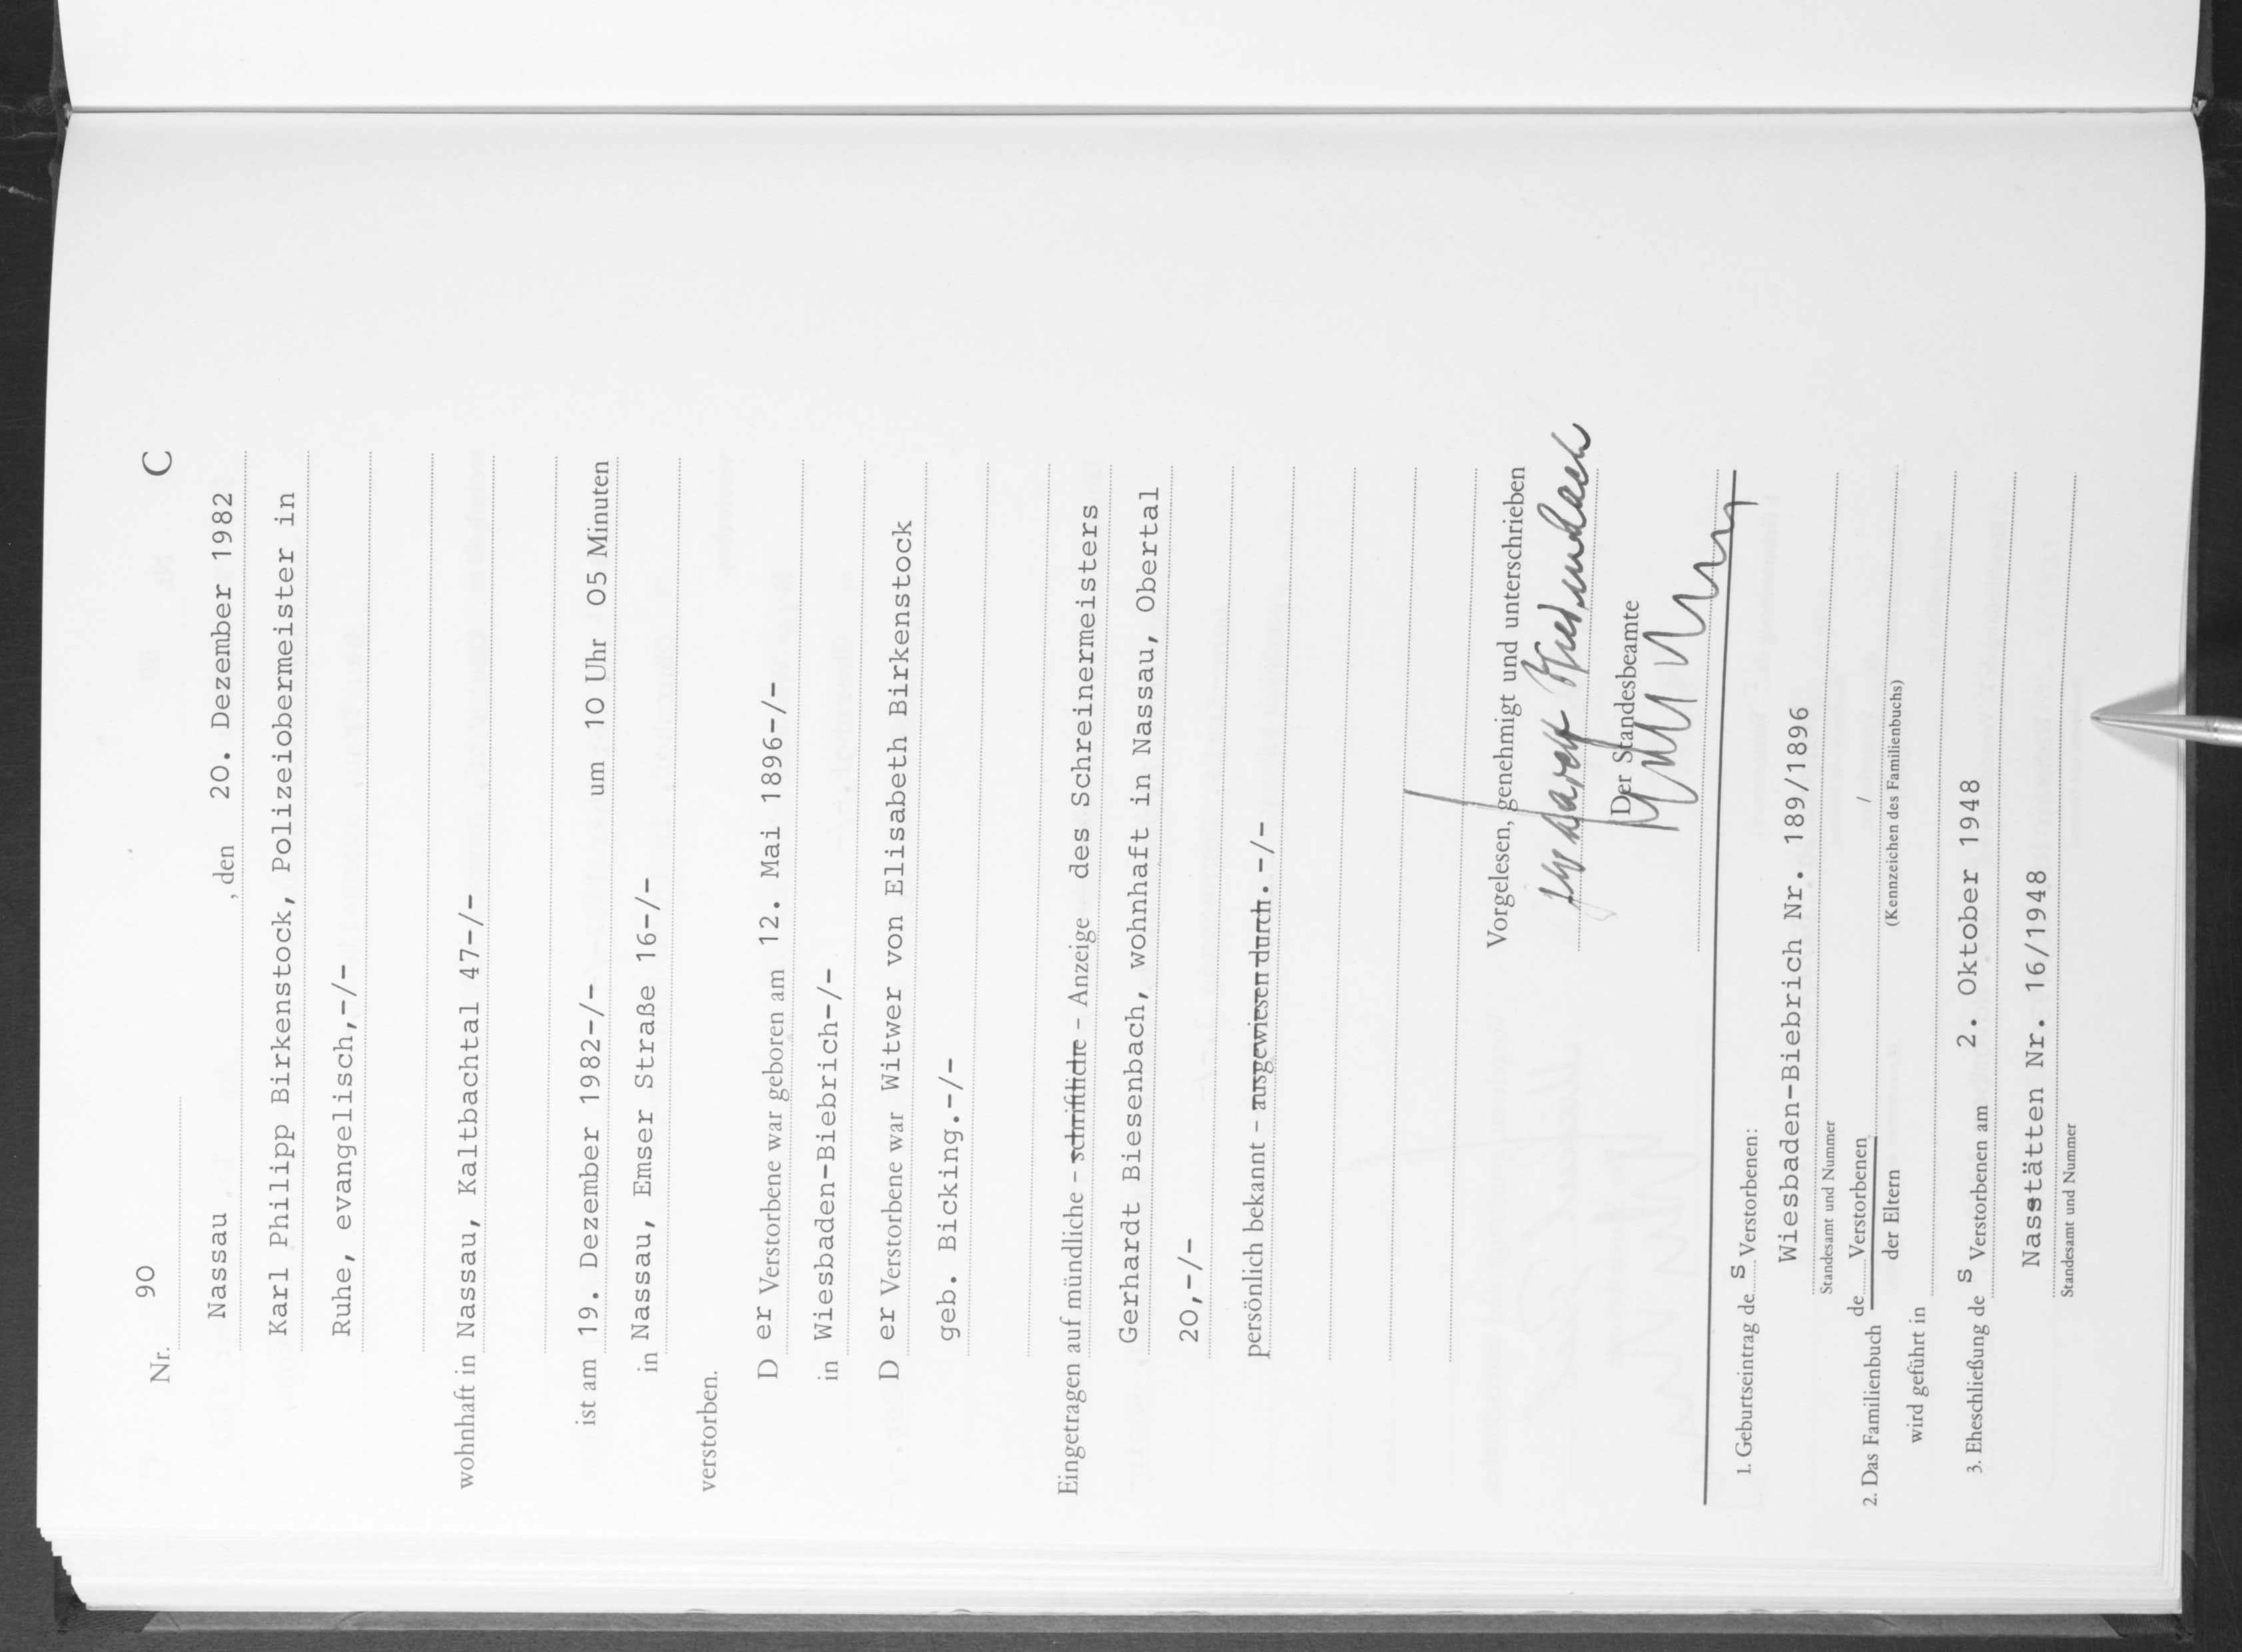 Nr. 90 C
Nassau, den 20. Dezember 1982
Karl Philipp Birkenstock, Polizeiobermeister in
Ruhe, evangelisch,-/-
wohnhaft in Nassau, Kaltbachtal 47-/-
ist am 19. Dezember 1982-/- um 10 Uhr 05 Minuten
in Nassau, Emser Straße 16-/-
verstorben.
D er Verstorbene war geboren am 12. Mai 1896-/-
in Wiesbaden-Biebrich-/-
D er Verstorbene war Witwer von Elisabeth Birkenstock
geb. Bicking.-/-
Eingetragen auf mündliche - schriftliche - Anzeige des Schreinermeisters
Gerhardt Biesenbach, wohnhaft in Nassau, Obertal
20,-/-
persönlich bekannt - ausgewiesen durch.-/-
Vorgelesen, genehmigt und unterschrieben
Der Standesbeamte
1. Geburtseintrag de s Verstorbenen:
Wiesbaden-Biebrich Nr. 189/1896
Standesamt und Nummer
2. Das Familienbuch de Verstorbenen /
der Eltern (Kennzeichen des Familienbuchs)
wird geführt in
3. Eheschließung de s Verstorbenen am 2. Oktober 1948
Nasstätten Nr. 16/1948
Standesamt und Nummer